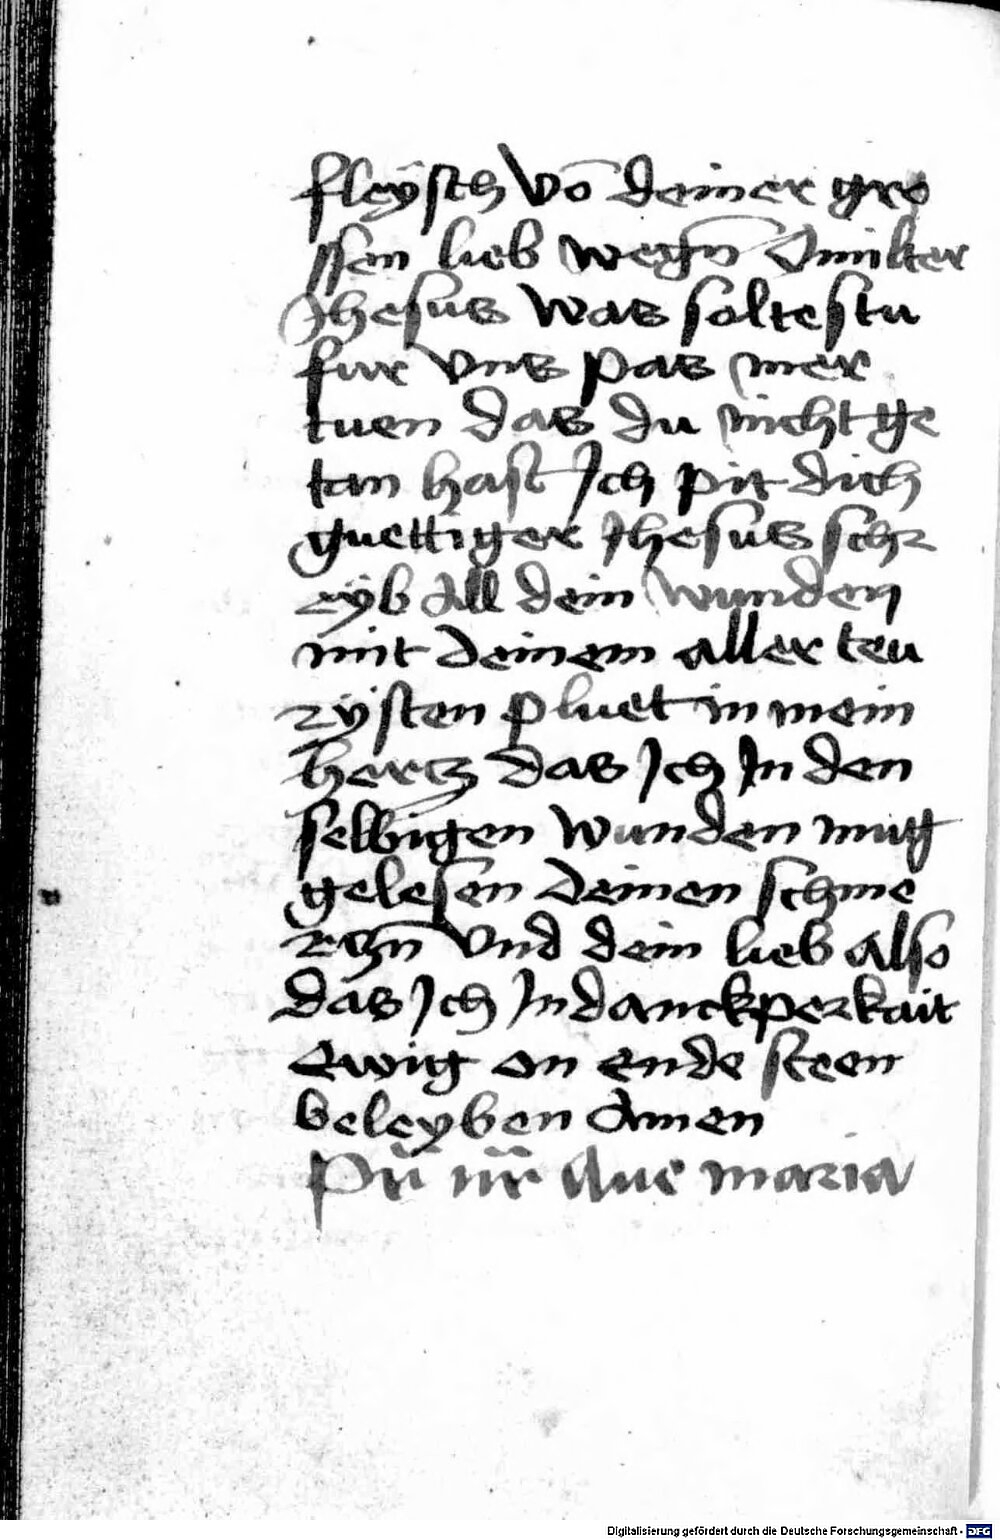 fleÿsch vō deiner gro
ssen lieb wegn̄ O milter
Jhesus was soltestu
fur vns pas mer
tuen das du nicht ge
tan hast Ich pit dich
guettiger Jhesus schr
eÿb All dein wunden
mit deinem aller teu
rÿsten pluet in mein
hertz das Ich In den
selbigen wunden mug
gelesen deinen schme
rczn̄ vnd dein lieb also
das Ich In danckperkait
Ewig on ende steen
beleyben Amen
Pr̄ nr̄ Aue maria
Digitalisierung gefördert durch die Deutsche Forschungsgemeinschaft - DFG